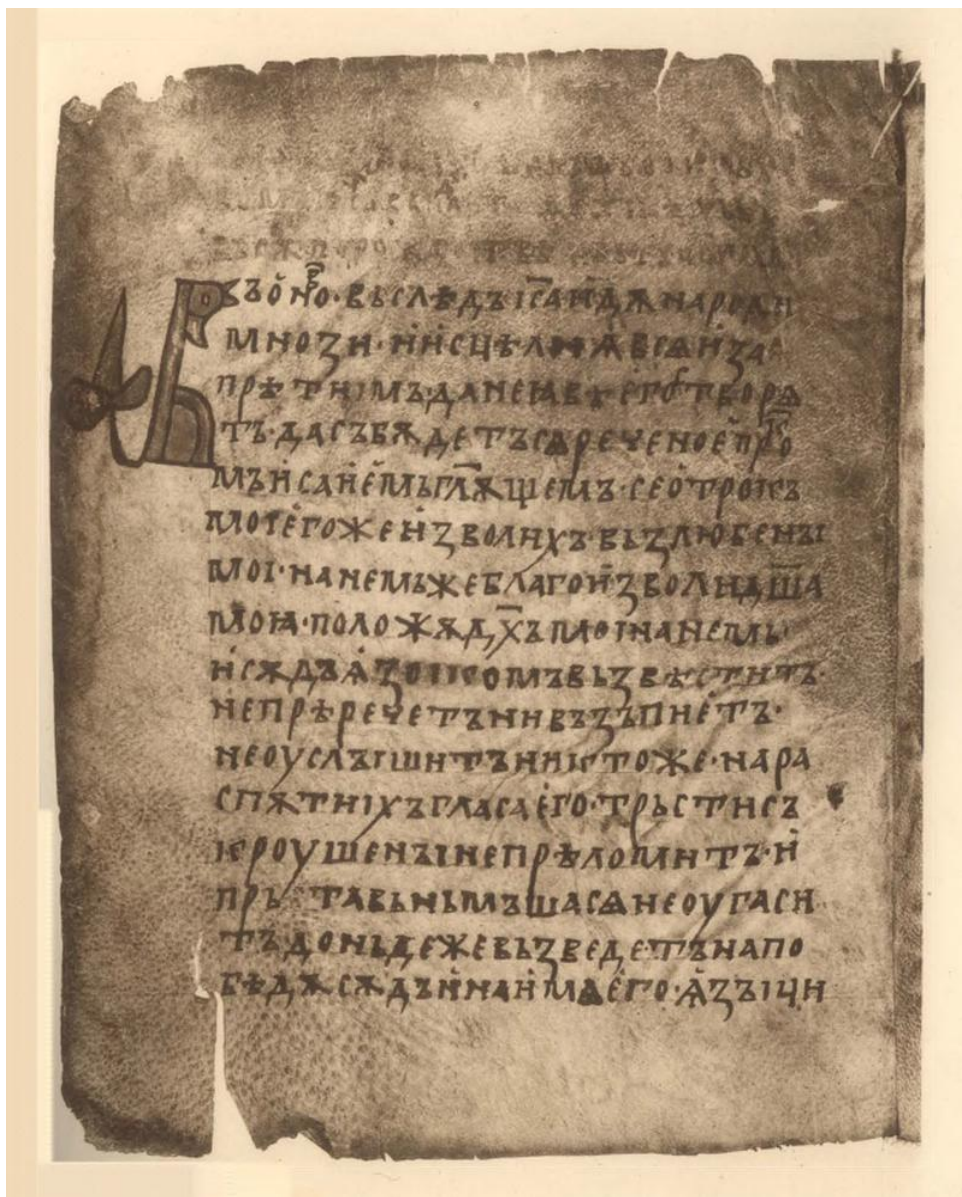 Въ ѻ҆но̑·вьслѣдъ і҃са и҆дѫ народи
мнози·и҆ и҆сцѣли ѩ вс҄ѩ и҆ за
прѣти імъ да не ꙗвѣ е҆го творѧ
тъ·да съ бѫдетъ сѧ реченое҆ про
мъ и҆саие҆мь гл҃ѭщемъ·се о҆трокъ
моі е҆гоже и҆зволихъ вьзлюбены
мої·на немьже благои҆зволи дш҃а
моꙗ·положѫ дх҃ъ мої на немь·
и сѫдъ ѩзъікомъ вьзвѣститъ·
не прѣречетъ ни възъпие҆тъ·
не оуслъішитъ никтоже·на ра
спѫтиіхъ гласа е҆го·трьсти съ
кроушенъі не прѣломитъ·и҆
пръ тавьньмъша сѧ не оугаси
тъ доньдеже вьзведетъ на по
бѣдѫ сѫдъ и҆ на имѧ е҆го·ѩ҆зъіци